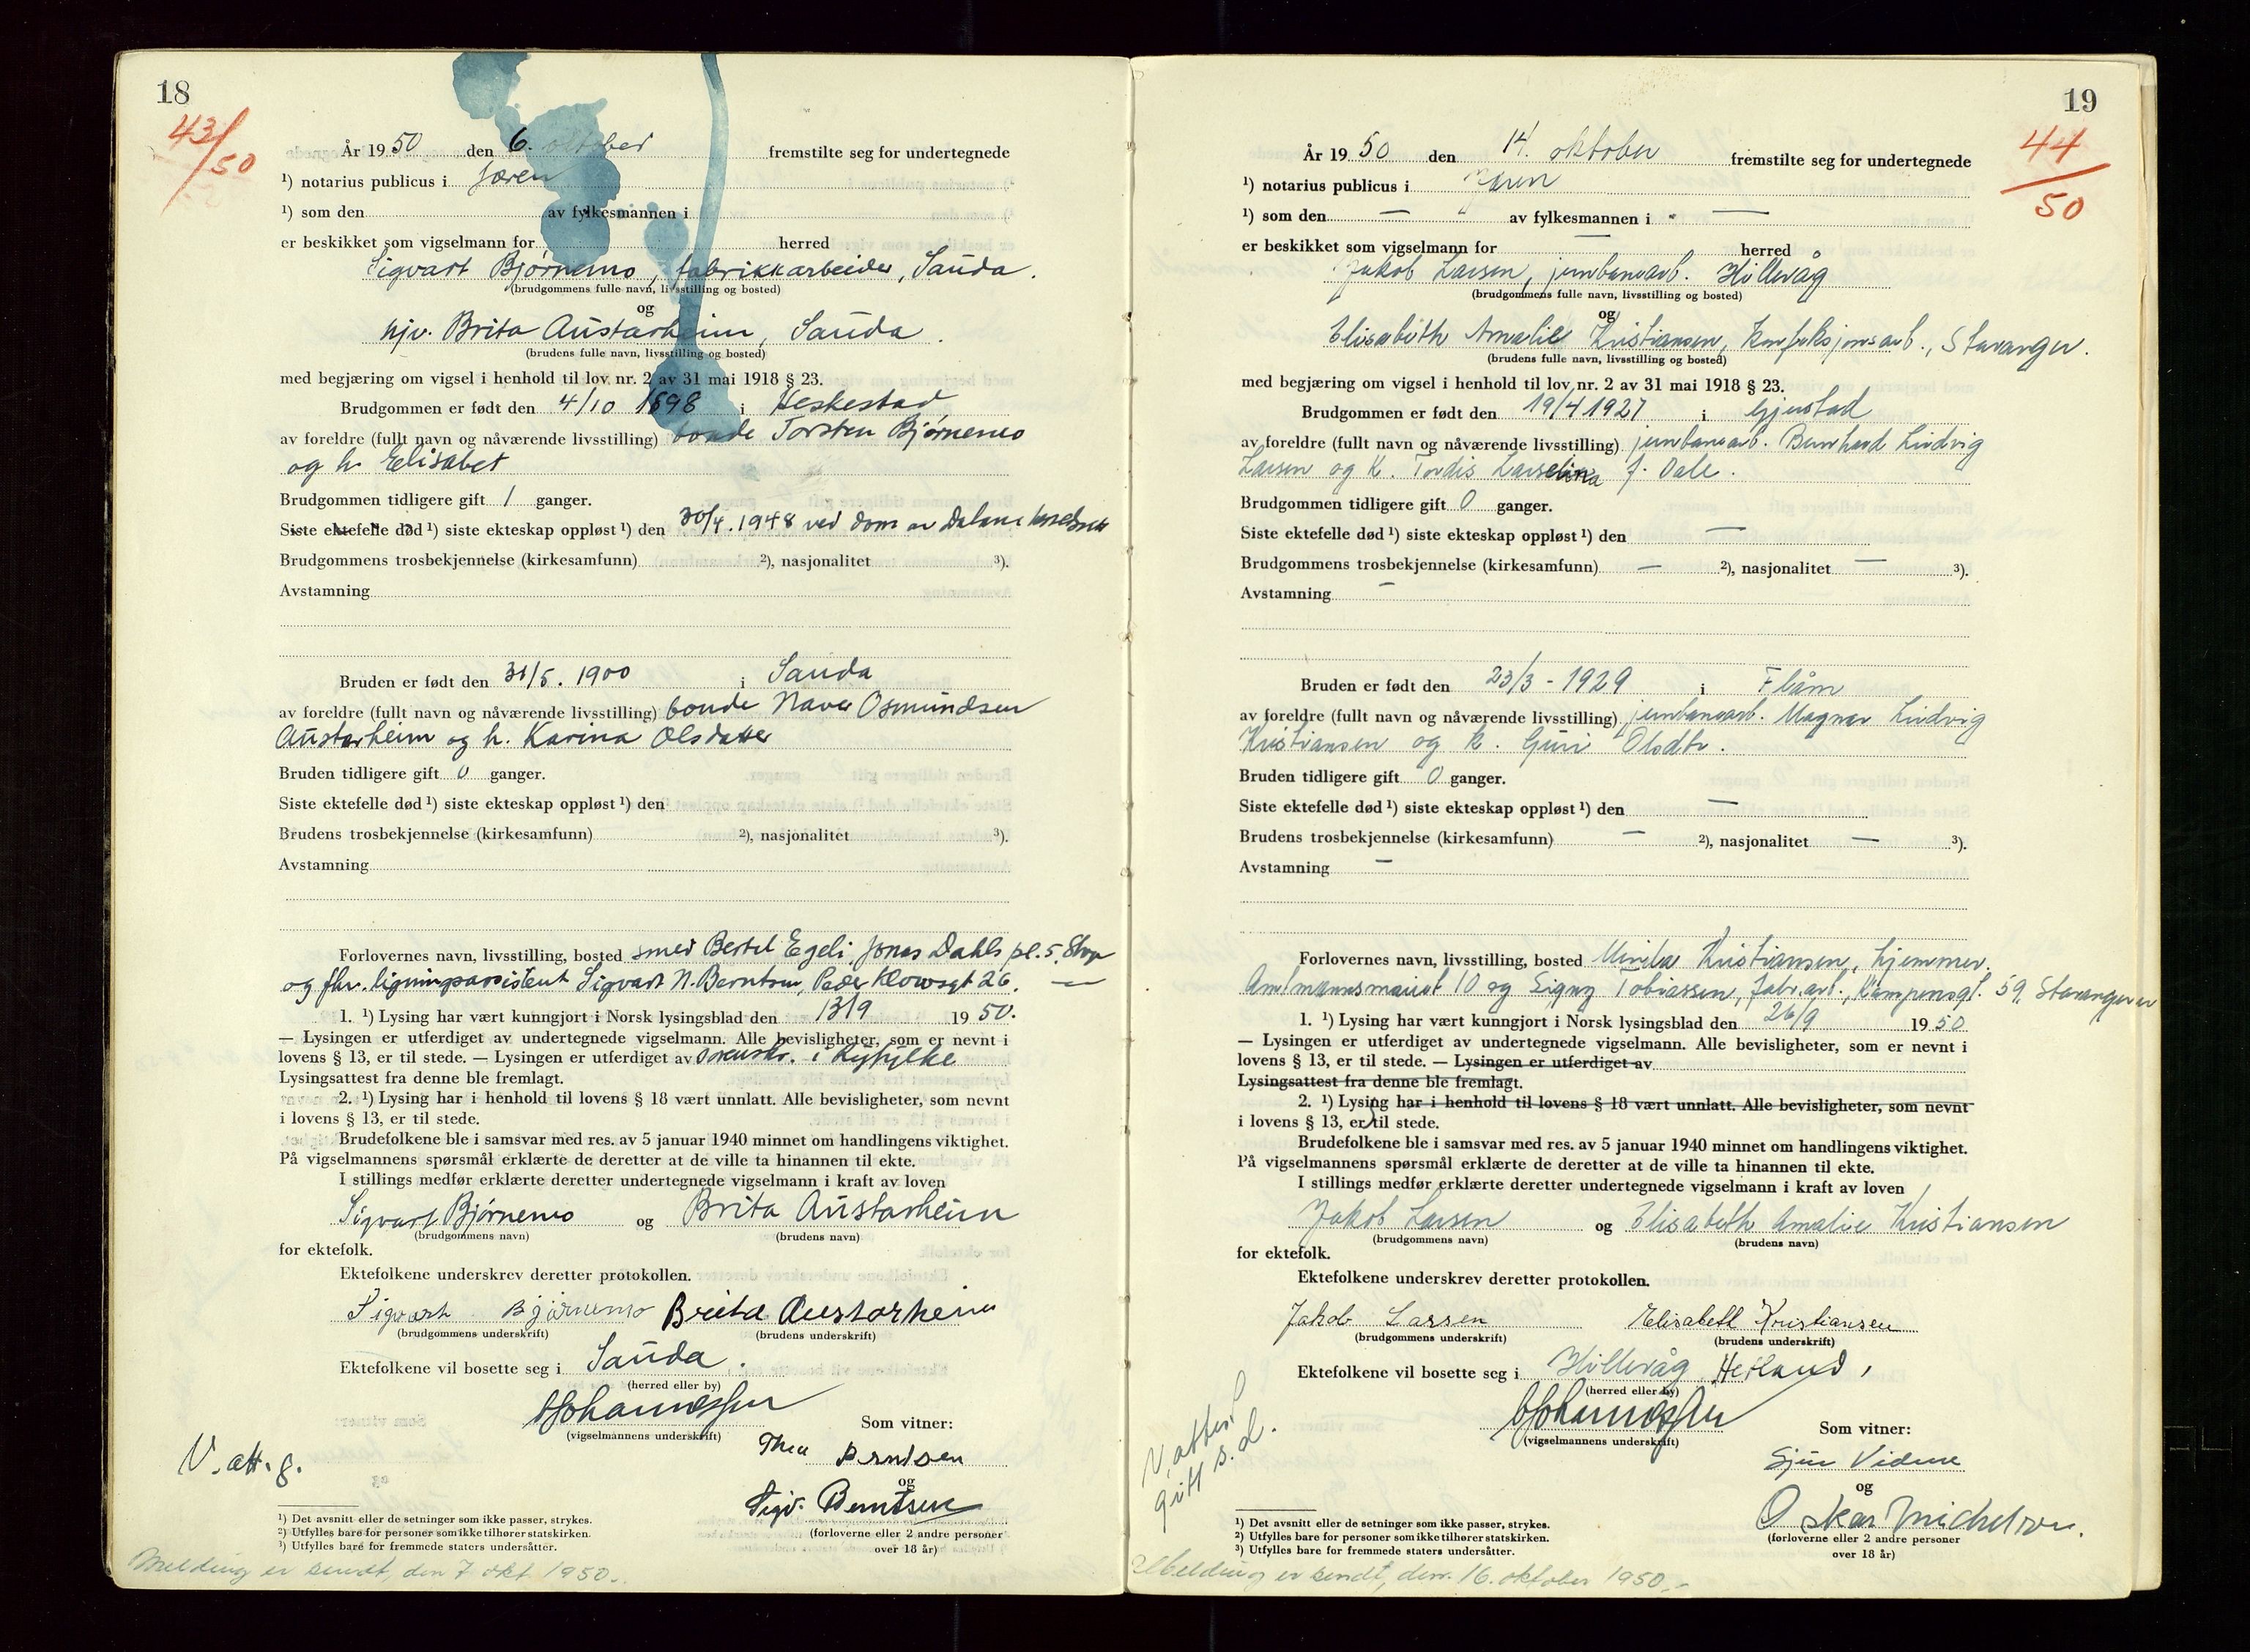 18
43/50
År 1950 den 6. oktober fremstilte seg for undertegnede
¹) notarius publicus i Jæren
¹) som den av fylkesmannen i
er beskikket som vigselmann for herred
Sigvart Bjørnemo, fabrikkarbeider, Sauda.
(brudgommens fulle navn, livsstilling og bosted)
og
Brita Austarheim, Sauda.
(brudens fulle navn, livsstilling og bosted)
med begjæring om vigsel i henhold til lov nr. 2 av 31 mai 1918 § 23.
Brudgommen er født den 4/10 1898 i Heskestad
av foreldre (fullt navn og nåværende livsstilling) bonde Torsten Bjørnemo
og h. Elisabet
Brudgommen tidligere gift 1 ganger.
Siste ektefelle død ¹) siste ekteskap oppløst ¹) den 30/4. 1948 ved dom av Dalane
Brudgommens trosbekjennelse (kirkesamfunn) ²), nasjonalitet ³).
Avstamning
Bruden er født den 31/5. 1900 i Sauda
av foreldre (fullt navn og nåværende livsstilling) bonde Osmundsen
Austarheim og h. Karina Olsdatter
Bruden tidligere gift 0 ganger.
Siste ektefelle død ¹) siste ekteskap oppløst ¹) den
Brudens trosbekjennelse (kirkesamfunn) ²), nasjonalitet ³).
Avstamning
Forlovernes navn, livsstilling, bosted smed Bertel Egeli, Jonas Dahls pl. 5, Stvgr
og fhv. ligningsassistent Sigvart N. Berntsen, Peder Klowsgt 26. —
1. ¹) Lysing har vært kunngjort i Norsk lysingsblad den 13/9 1950.
— Lysingen er utferdiget av undertegnede vigselmann. Alle bevisligheter, som er nevnt i
lovens § 13, er til stede. — Lysingen er utferdiget av i Ryfylke
Lysingsattest fra denne ble fremlagt.
2. ¹) Lysing har i henhold til lovens § 18 vært unnlatt. Alle bevisligheter, som nevnt
i lovens § 13, er til stede.
Brudefolkene ble i samsvar med res. av 5 januar 1940 minnet om handlingens viktighet.
På vigselmannens spørsmål erklærte de deretter at de ville ta hinannen til ekte.
I stillings medfør erklærte deretter undertegnede vigselmann i kraft av loven
Sigvart Bjørnemo og Brita Austarheim
(brudgommens navn) (brudens navn)
for ektefolk.
Ektefolkene underskrev deretter protokollen.
Sigvart Bjørnemo Brita Austarheim
(brudgommens underskrift) (brudens underskrift)
Ektefolkene vil bosette seg i Sauda.
(herred eller by)
Johannessen
(vigselmannens underskrift)
Som vitner:
Thea Berntsen
og
Sigv. Berntsen
(forloverne eller 2 andre personer
over 18 år)
V. att. g.
¹) Det avsnitt eller de setninger som ikke passer, strykes.
²) Utfylles bare for personer som ikke tilhører statskirken.
³) Utfylles bare for fremmede staters undersåtter.
Melding er sendt, den 7 okt 1950.
19
44/50
År 1950 den 14. oktober fremstilte seg for undertegnede
¹) notarius publicus i Jæren
¹) som den — av fylkesmannen i —
er beskikket som vigselmann for — herred
Jakob Larsen, jernbanearb. Hillevåg
(brudgommens fulle navn, livsstilling og bosted)
og
Elisabeth Amalie Kristiansen, konfeksjonsarb., Stavanger.
(brudens fulle navn, livsstilling og bosted)
med begjæring om vigsel i henhold til lov nr. 2 av 31 mai 1918 § 23.
Brudgommen er født den 19/4 1927 i Gjestad
av foreldre (fullt navn og nåværende livsstilling) jernbanearb. Bernhard Ludvig
Larsen og h. Tordis Larselina f. Dale.
Brudgommen tidligere gift 0 ganger.
Siste ektefelle død ¹) siste ekteskap oppløst ¹) den —
Brudgommens trosbekjennelse (kirkesamfunn) — ²), nasjonalitet — ³).
Avstamning —
Bruden er født den 23/3 - 1929 i Flåm
av foreldre (fullt navn og nåværende livsstilling) jernbanearb. Magnar Ludvig
Kristiansen og h. Guri Olsdtr.
Bruden tidligere gift 0 ganger.
Siste ektefelle død ¹) siste ekteskap oppløst ¹) den —
Brudens trosbekjennelse (kirkesamfunn) — ²), nasjonalitet — ³).
Avstamning —
Forlovernes navn, livsstilling, bosted Kristiansen, hjemmev.
10 og Signy Tobiassen, fabr.arb., Kampensgt. 59, Stavanger
1. ¹) Lysing har vært kunngjort i Norsk lysingsblad den 26/9 1950
— Lysingen er utferdiget av undertegnede vigselmann. Alle bevisligheter, som er nevnt i
lovens § 13, er til stede. — Lysingen er utferdiget av
Lysingsattest fra denne ble fremlagt.
2. ¹) Lysing har i henhold til lovens § 18 vært unnlatt. Alle bevisligheter, som nevnt
i lovens § 13, er til stede.
Brudefolkene ble i samsvar med res. av 5 januar 1940 minnet om handlingens viktighet.
På vigselmannens spørsmål erklærte de deretter at de ville ta hinannen til ekte.
I stillings medfør erklærte deretter undertegnede vigselmann i kraft av loven
Jakob Larsen og Elisabeth Amalie Kristiansen
(brudgommens navn) (brudens navn)
for ektefolk.
Ektefolkene underskrev deretter protokollen.
Jakob Larsen Elisabeth Kristiansen
(brudgommens underskrift) (brudens underskrift)
Ektefolkene vil bosette seg i Hillevåg, Hetland,
(herred eller by)
Johannessen
(vigselmannens underskrift)
Som vitner:
Sjur Vidme
og
Oskar Michelsen.
(forloverne eller 2 andre personer
over 18 år)
V. attest
gitt s. d.
¹) Det avsnitt eller de setninger som ikke passer, strykes.
²) Utfylles bare for personer som ikke tilhører statskirken.
³) Utfylles bare for fremmede staters undersåtter.
Melding er sendt, den 16. oktober 1950.-